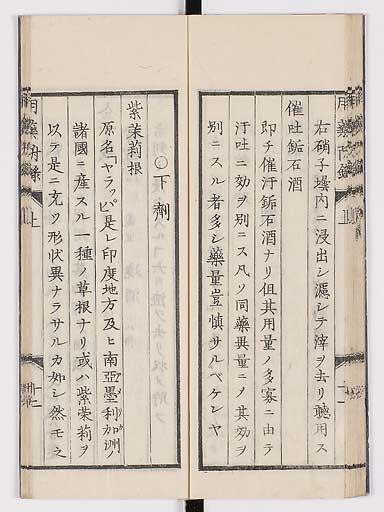 右硝子壜内ニ浸出シ漉シテ滓ヲ去リ聽用ス
催吐鉐石酒
即チ催汗鉐石酒ナリ但其用量ノ多寡ニ由テ
汗吐ニ効ヲ別ニス凡ソ同藥異量ニノ其効ヲ
別ニスル者多シ藥量豈慎サルベケンヤ
○下劑
紫茉莉根
原名「ヤラッパ」是レ印度地方及ヒ南亞墨利加洲ノ
諸國ニ産スル一種ノ草根ナリ或ハ紫茉莉ヲ
以テ是ニ充ツ形状異ナラサルカ如シ然モ之